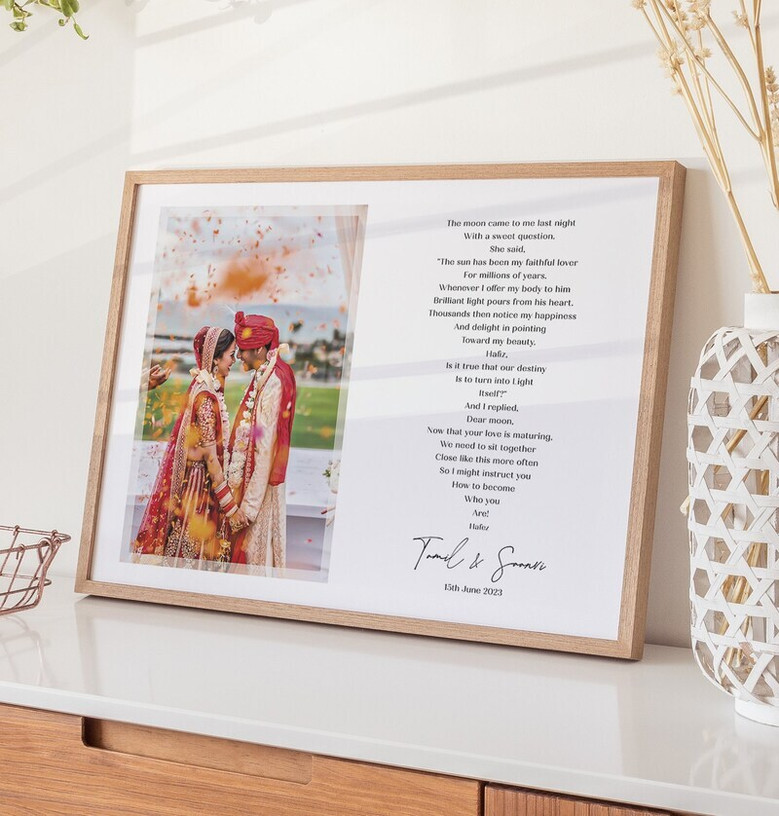 The moon came to me last night
With a sweet question.
She said,
"The sun has been my faithful lover
For millions of years.
Whenever I offer my body to him
Brilliant light pours from his heart.
Thousands then notice my happiness
And delight in pointing
Toward my beauty.
Hafiz,
Is it true that our destiny
Is to turn into Light
Itself?"
And I replied,
Dear moon,
Now that your love is maturing,
We need to sit together
Close like this more often
So I might instruct you
How to become
Who you
Are!
Hafez
Tamil & Saanvi
15th June 2023